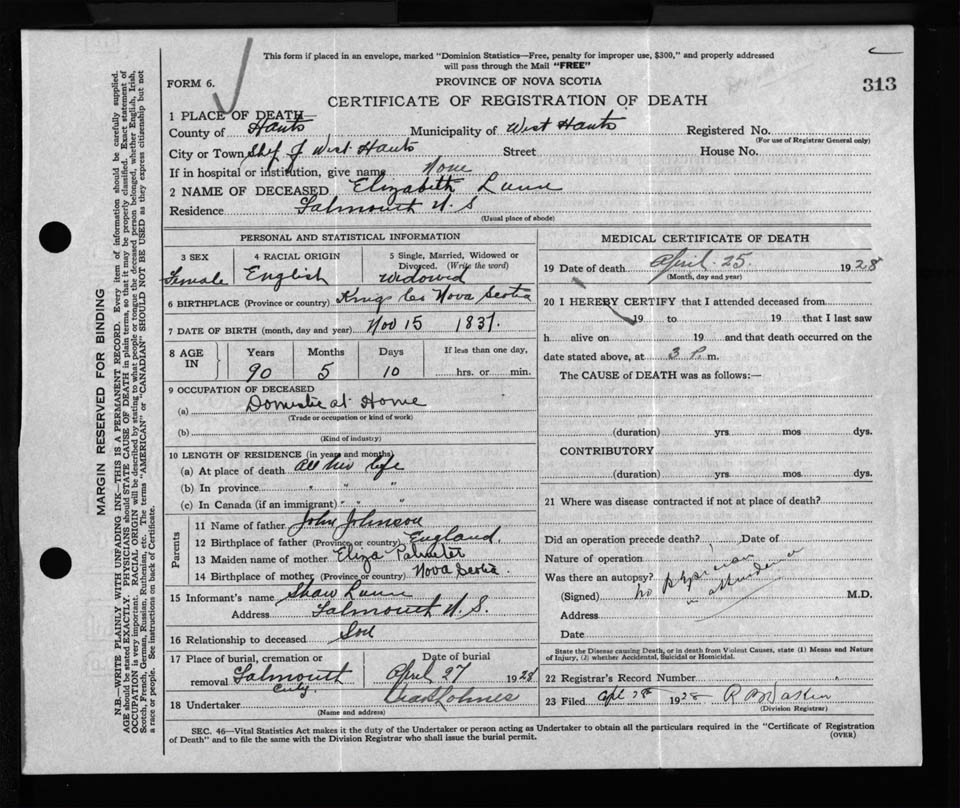 This form if placed in an envelope, marked "Dominion Statistics—Free, penalty for improper use, $300," and properly addressed
will pass through the Mail "FREE"
FORM 6.
PROVINCE OF NOVA SCOTIA
313
CERTIFICATE OF REGISTRATION OF DEATH
1 PLACE OF DEATH—
County of Hants Municipality of West Hants Registered No.
(For use of Registrar General only)
City or Town of West Hants Street House No.
If in hospital or institution, give name None
2 NAME OF DECEASED Elizabeth
Residence Falmouth N. S
(Usual place of abode)
PERSONAL AND STATISTICAL INFORMATION
3 SEX
Female
4 RACIAL ORIGIN
English
5 Single, Married, Widowed or
Divorced. (Write the word)
Widowed
6 BIRTHPLACE (Province or country) Kings Co Nova Scotia
7 DATE OF BIRTH (month, day and year) Nov 15 1837.
8 AGE
IN
Years Months Days If less than one day,
90 5 10 hrs. or min.
9 OCCUPATION OF DECEASED
(a) Domestic at Home
(Trade or occupation or kind of work)
(b)
(Kind of industry)
10 LENGTH OF RESIDENCE (in years and months)
(a) At place of death All her life
(b) In province " " "
(c) In Canada (if an immigrant) " " "
Parents
11 Name of father John Johnson
12 Birthplace of father (Province or country) England
13 Maiden name of mother Eliza Palmeter
14 Birthplace of mother (Province or country) Nova Scotia.
15 Informant's name Shaw
Address Falmouth N. S.
16 Relationship to deceased Son
17 Place of burial, cremation or
removal Falmouth
Date of burial
April 27 1928
18 Undertaker
(Name and address)
MEDICAL CERTIFICATE OF DEATH
19 Date of death April 25 1928
(Month, day and year)
20 I HEREBY CERTIFY that I attended deceased from
19 to 19 that I last saw
h alive on 19 and that death occurred on the
date stated above, at 3 P. m.
The CAUSE of DEATH was as follows:—
(duration) yrs. mos. dys.
CONTRIBUTORY
(duration) yrs. mos. dys.
21 Where was disease contracted if not at place of death?
Did an operation precede death? Date of
Nature of operation
Was there an autopsy?
no physician
in attendance
(Signed) M.D.
Address
Date
State the Disease causing Death, or in death from Violent Causes, state (1) Means and Nature
of Injury, (2) whether Accidental, Suicidal or Homicidal.
22 Registrar's Record Number
23 Filed 1928
(Division Registrar)
SEC. 46—Vital Statistics Act makes it the duty of the Undertaker or person acting as Undertaker to obtain all the particulars required in the "Certificate of Registration
of Death" and to file the same with the Division Registrar who shall issue the burial permit.
(OVER)
MARGIN RESERVED FOR BINDING
N.B.—WRITE PLAINLY WITH UNFADING INK—THIS IS A PERMANENT RECORD. Every item of information should be carefully supplied.
AGE should be stated EXACTLY. PHYSICIANS should STATE CAUSE OF DEATH in plain terms, so that it may be properly classified. Exact statement of
OCCUPATION is very important. RACIAL ORIGIN will be described by stating to what people or tongue the deceased person belonged, whether English, Irish,
Scotch, French, German, Russian, Ruthenian, etc. The terms "AMERICAN" or "CANADIAN" SHOULD NOT BE USED as they express citizenship but not
a race or people. See instructions on back of Certificate.